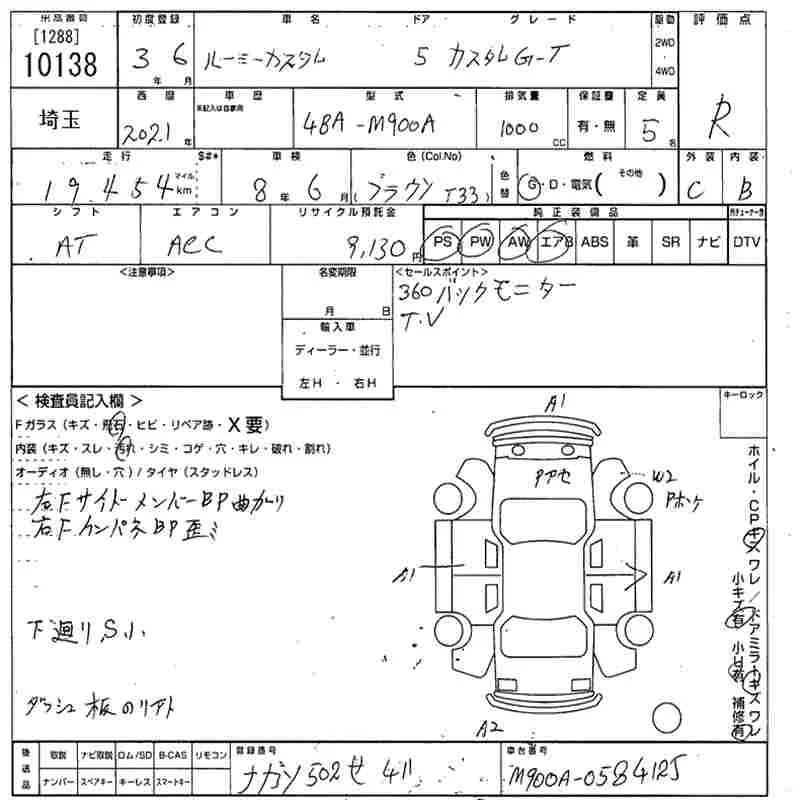 出品番号 初度登録 車名 ドア グレード 駆動 評価点
[1288]
10138 3年 6月 ルーミーカスタム 5 カスタムG-T 2WD・4WD R
埼玉 西暦 車歴 型式 排気量 保証書 定員
未記入は自家用
2021年 4BA-M900A 1000cc 有・無 5名
走行 S#* 車検 色(Col.No) 色替 燃料 外装 内装
19,454 マイル km 8年 6月 (ブラウン T33) G・D・電気( その他 ) C B
シフト エアコン リサイクル預託金 純正装備品
AT ACC 9,130円 PS PW AW エアB ABS 革 SR ナビ DTV
<注意事項> 名変期限 <セールスポイント>
月 日
360バックモニター
T.V
輸入車
ディーラー・並行
左H・右H
<検査員記入欄> キーロック
Fガラス(キズ・飛石・ヒビ・リペア跡・X要)
内装(キズ・スレ・汚れ・シミ・コゲ・穴・キレ・破れ・割れ)
オーディオ(無し・穴)/タイヤ(スタッドレス)
右Fサイドメンバー BP曲がり
右Fインパネ BP歪ミ
下廻りS小
ダッシュ板のリアト
A1
Pアセ
W2
Pボケ
A1
A1
A2
ホイル・CPキズワレ/ドアミラーキズワレ
小キズ有 小H有 補修有
後送品 取説 ナビ取説 ロム/SD B-CAS リモコン 登録番号 車台番号
ナンバー スペアキー キーレス スマートキー ナガノ502せ411 M900A-0584125